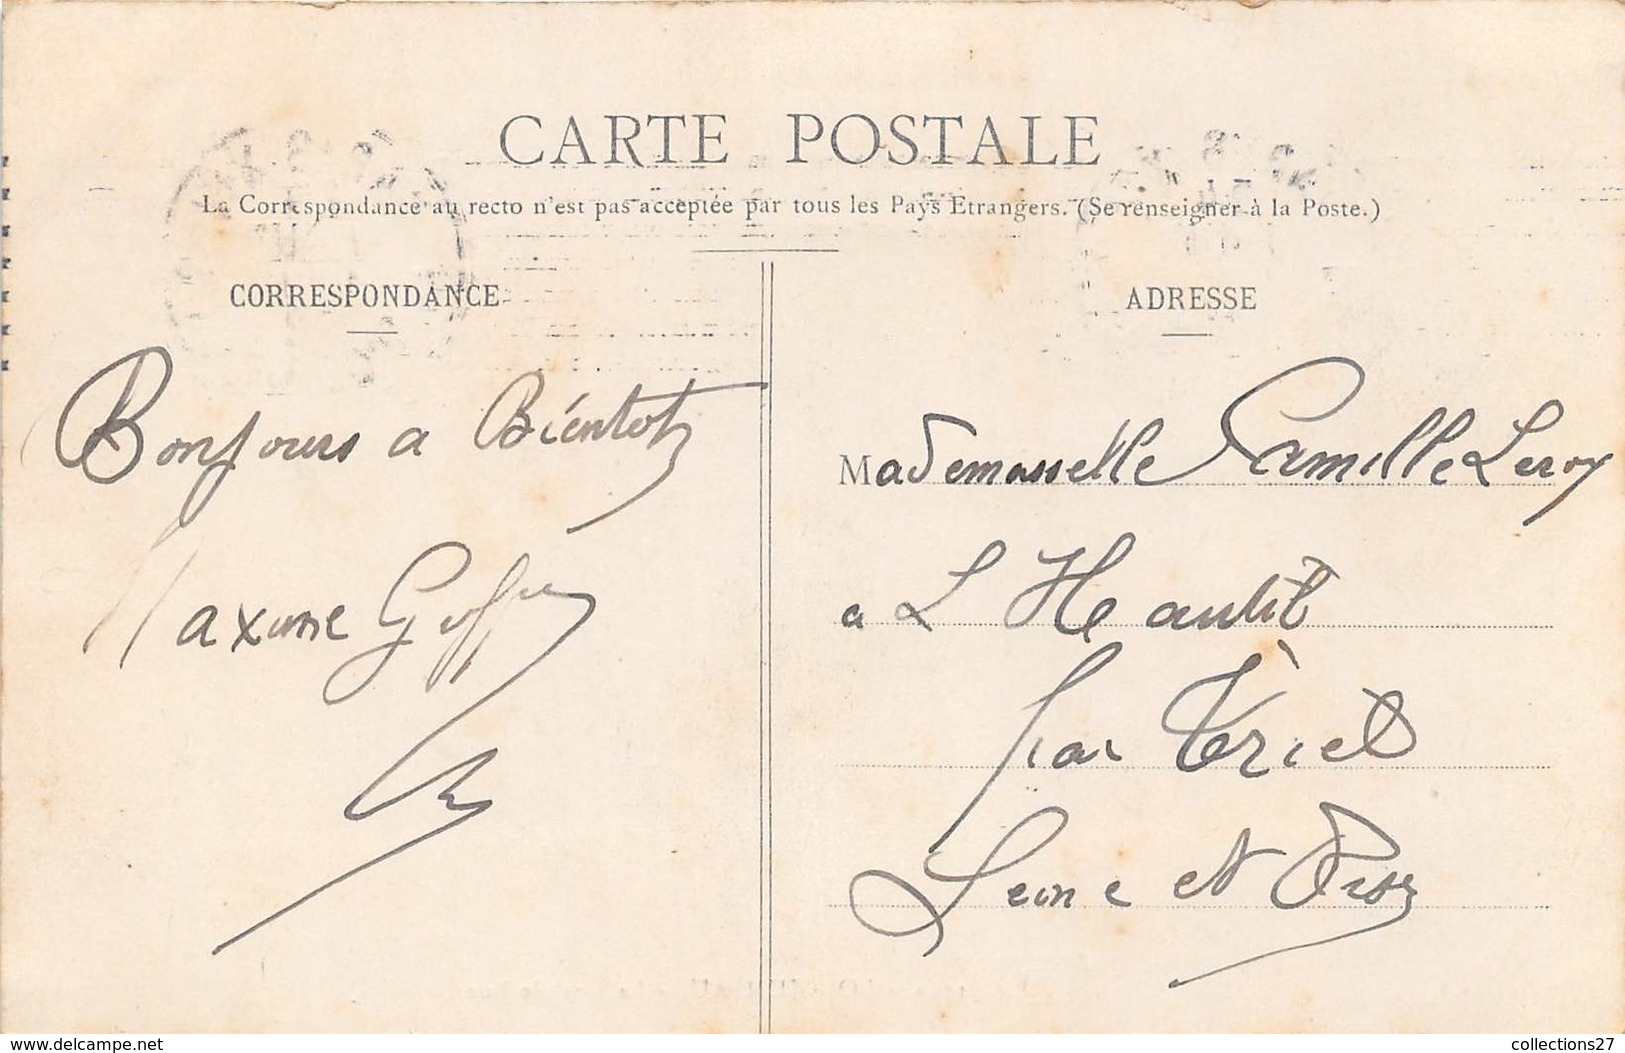 CARTE POSTALE
La Correspondance au recto n'est pas acceptée par tous les Pays Etrangers. (Se renseigner à la Poste.)
CORRESPONDANCE
Bonjours a Bientot
Maxime
ADRESSE
Mademoiselle Camille Leroy
a L Hautil
par Triel
Seine et Oise
www.delcampe.net
collections27